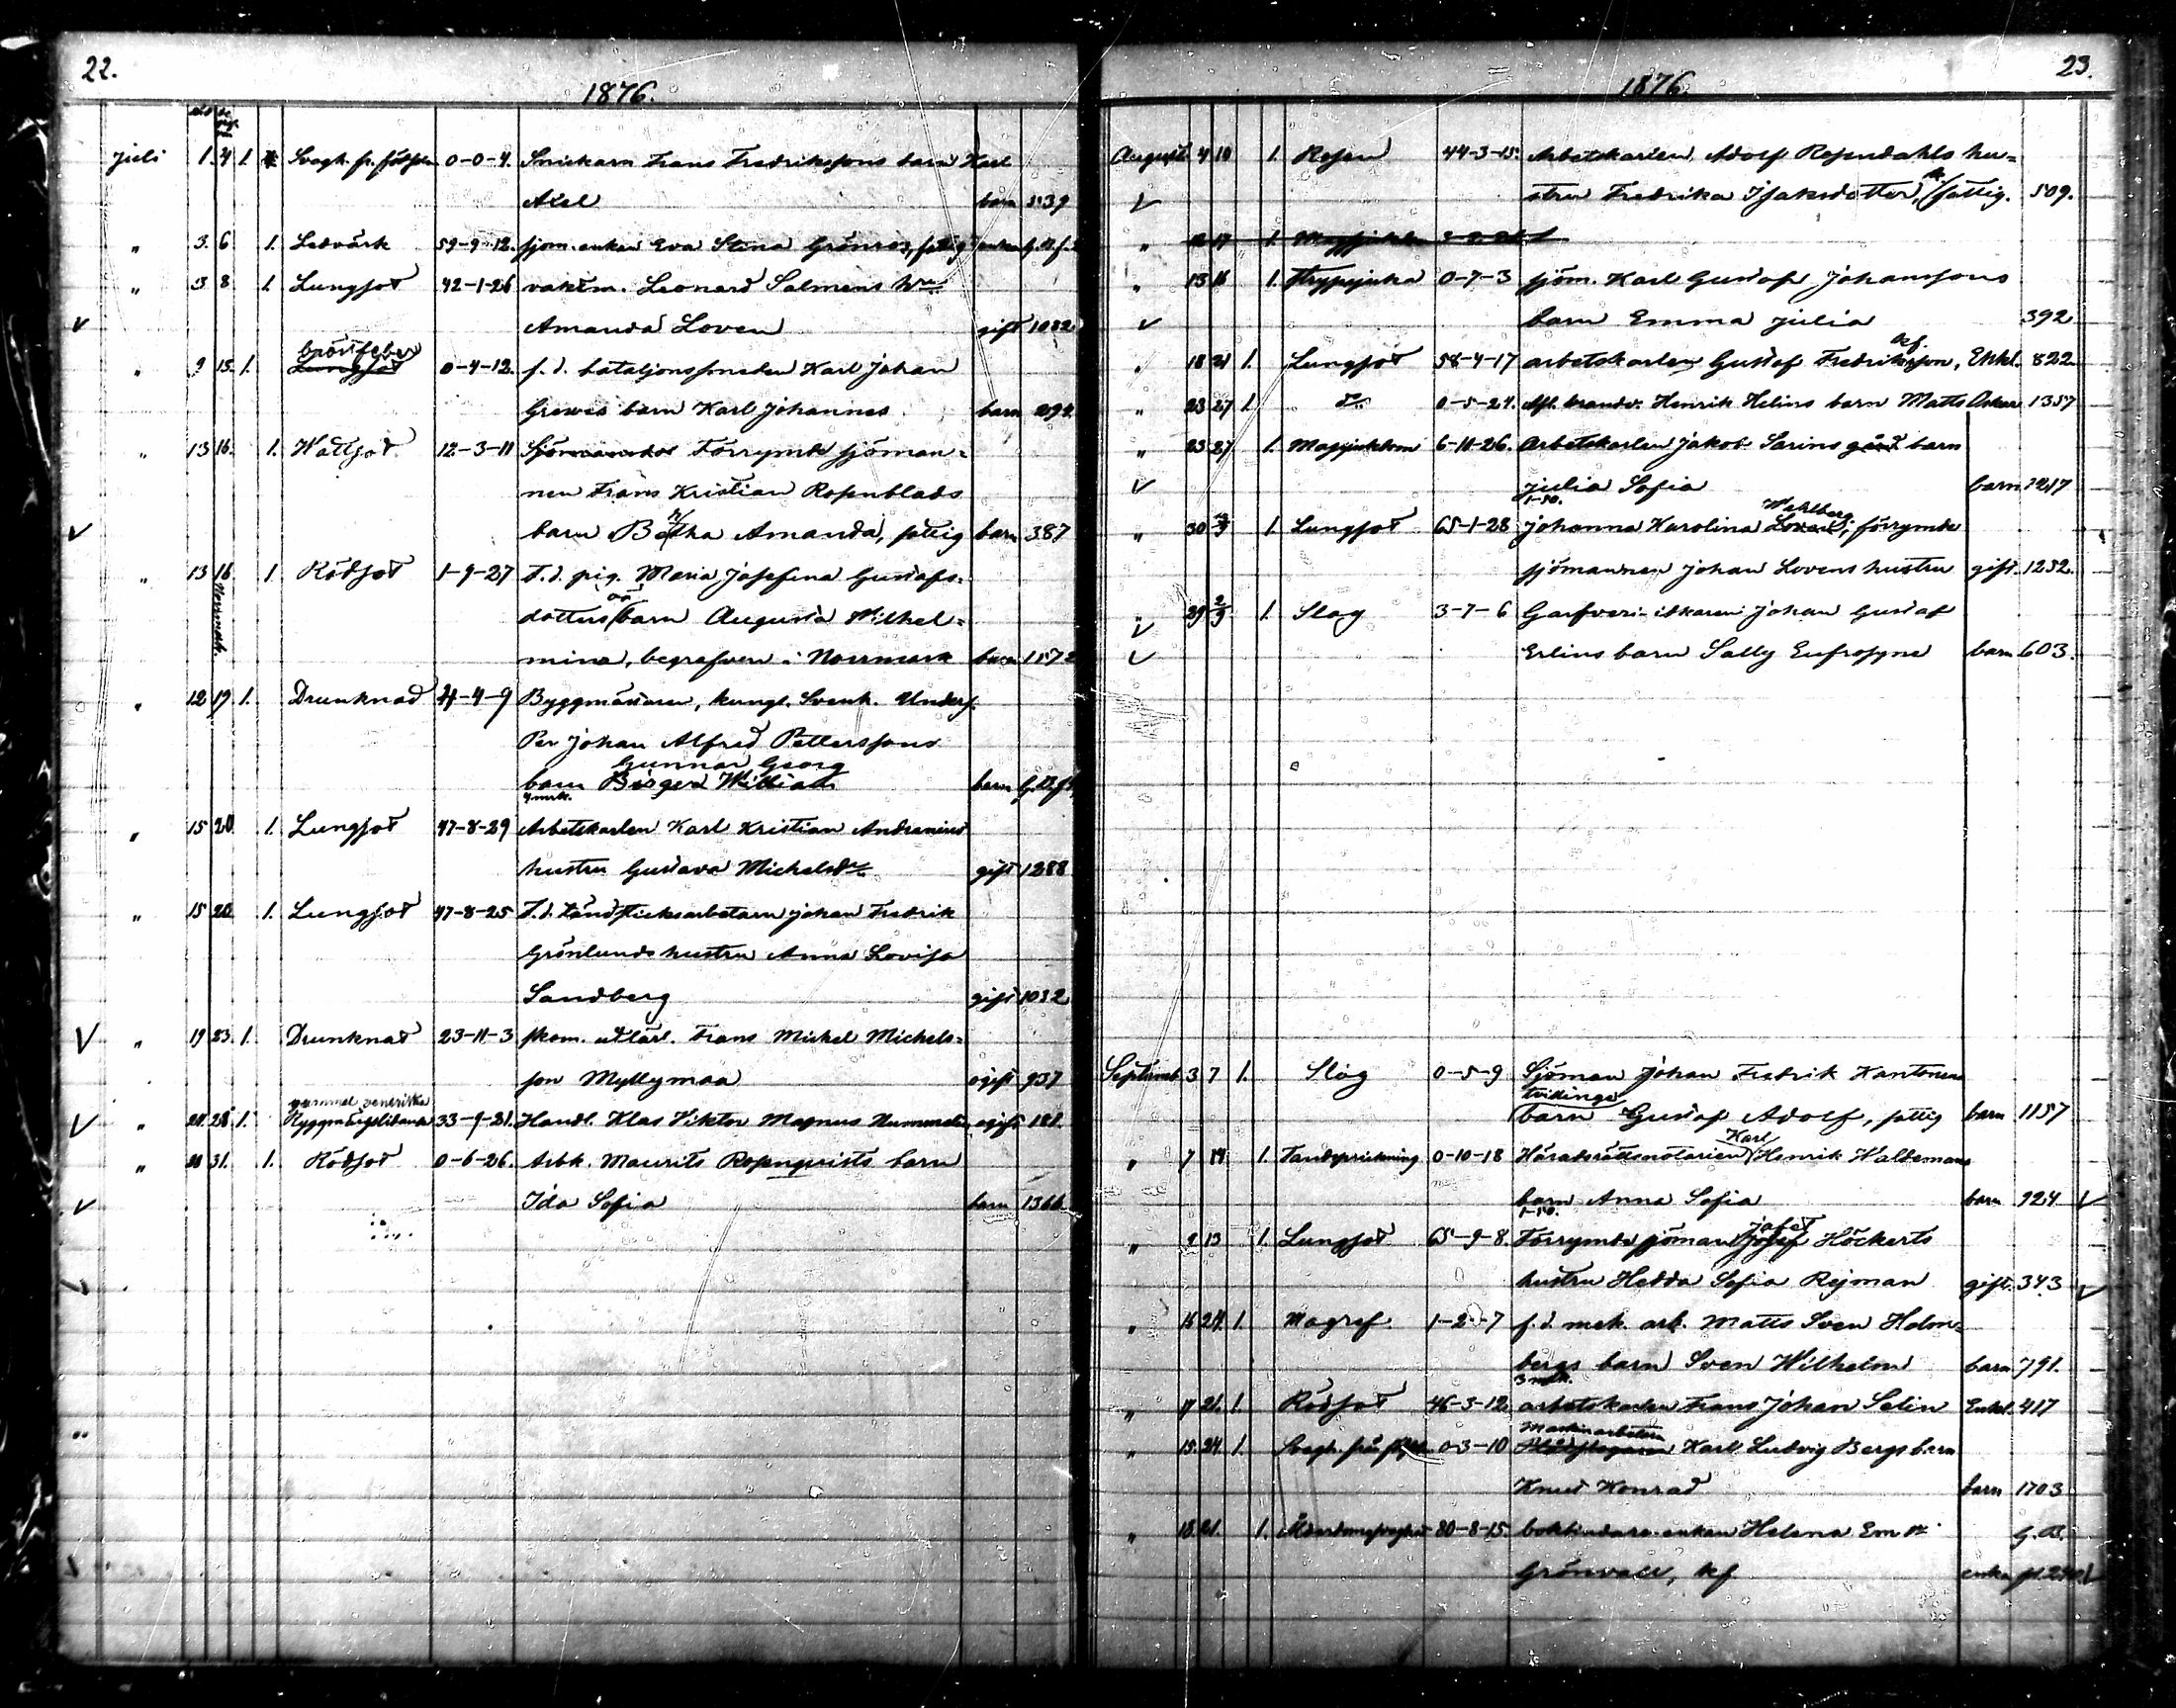 22.
1876.
Juli 1. 4 1. Svagh. fr. födseln 0-0-4. Snickarn Frans Fredrikssons barn Karl
Axel barn 1139
" 3. 6 1. Ledvärk 59-9-12. sjöm. enkan Eva Stina Grönroos, fattig enka
" 3 8 1. Lungsot 42-1-26 vaktm. Leonard Salmens hru
Amanda Loven gift 1082
bröstfeber
" 9 15. 1. Lungsot 0-4-12. f. d. bataljonssmeden Karl Johan
Grewes barn Karl Johannes barn 294.
" 13 16. 1. Wattsot 12-3-11 Förrymde sjöman-
nen Frans Kristian Rosenblads
barn Betha Amanda, fattig barn 387
" 13 16. 1. Rödsot 1-9-27 F. d. pig. Maria Josefina Gustafs-
oä
dotters barn Augusta Wilhel-
mina, begrafven i Norrmark barn 1572
Norrmark.
" 12 17. 1. Drunknad 4-4-9 Byggmästaren, kungl. Svensk. Unders.
Per Johan Alfred Petterssons
Gunnar Georg
barn Birger William barn
4 mrk.
" 15 20. 1. Lungsot 47-8-29 Arbetskarlen Karl Kristian Andrenius
hustru Gustava Michelsdr gift 1288
" 15 20. 1. Lungsot 47-8-25 F. d. tändsticksarbetarn Johan Fredrik
Grönlunds hustru Anna Lovisa
Sandberg gift 1032
" 19 23. 1. Drunknat 23-11-3 skom. utlärl. Frans Mickel Michels-
son Myllymaa ogift 937
gammal venerisk
" 28. 1. 33-9-21. Handl. Klas Viktor Magnus ogift 181.
" 31. 1. Rödsot 0-6-26. Arbk. Maurits Rosenqvists barn
Ida Sofia barn 1366
23.
1876.
August 4 10 1. Rosen 44-3-15. Arbetskarlen Adolf Rosendahls hu-
stru Fredrika Isaksdotter, fattig. 509.
" 12 17 1.
" 13 16 1. Strypsjuka 0-7-3 sjöm. Karl Gustaf Johanssons
barn Emma Julia 392
kf.
" 18 21 1. Lungsot 58-4-17 arbetskarlen Gustaf Fredriksson, Enkl. 822
" 23 27 1. do 0-5-24. Afl. brandv. Henrik Helins barn Matts Oskar 1357
" 23 27 1. Magsjukdom 6-11-26. Arbetskarlen Jakob Sarins barn
Julia Sofia barn 1217
1-50. Wahlberg
" 30 1. Lungsot 65-1-28 Johanna Karolina Loven, förrymde
sjömannen Johan Lovens hustru gift. 1252.
" 29 2/9 1. Slag 3-7-6 Garfveri-idkaren Johan Gustaf
Erlins barn Sally Eufrosyne barn 603.
Septemb. 3 7 1. Slag 0-5-9 Sjöman Johan Fredrik Kantonens
tvillinge
barn Gustaf Adolf, fattig barn 1157
Karl
" 7 14 1. Tandsprickning 0-10-18 Häradsrättsnotarien Henrik Waldemars
barn Anna Sofia barn 924
1-50. Jafet
" 9 13 1. Lungsot 65-9-8. Förrymde sjöman Josef Höckerts
hustru Hedda Sofia Rejman gift. 343
" 16 24. 1. Magref. 1-2-7 f. d. mek. arb. Matts Sven Holm-
bergs barn Sven Wilhelm barn 791.
3 mrk.
" 17 21. 1. Rödsot 46-3-12. arbetskarlen Frans Johan Selin Enkl. 417
Maskinarbetarn
" 15. 24. 1. Svagh. från 0-3-10 Karl Ludvig Bergs barn
Knut Konrad barn 1703
" 18. 21. 1. 80-8-15. bokbindare-enkan Helena Em. G. B.
Grönvall, kf enka